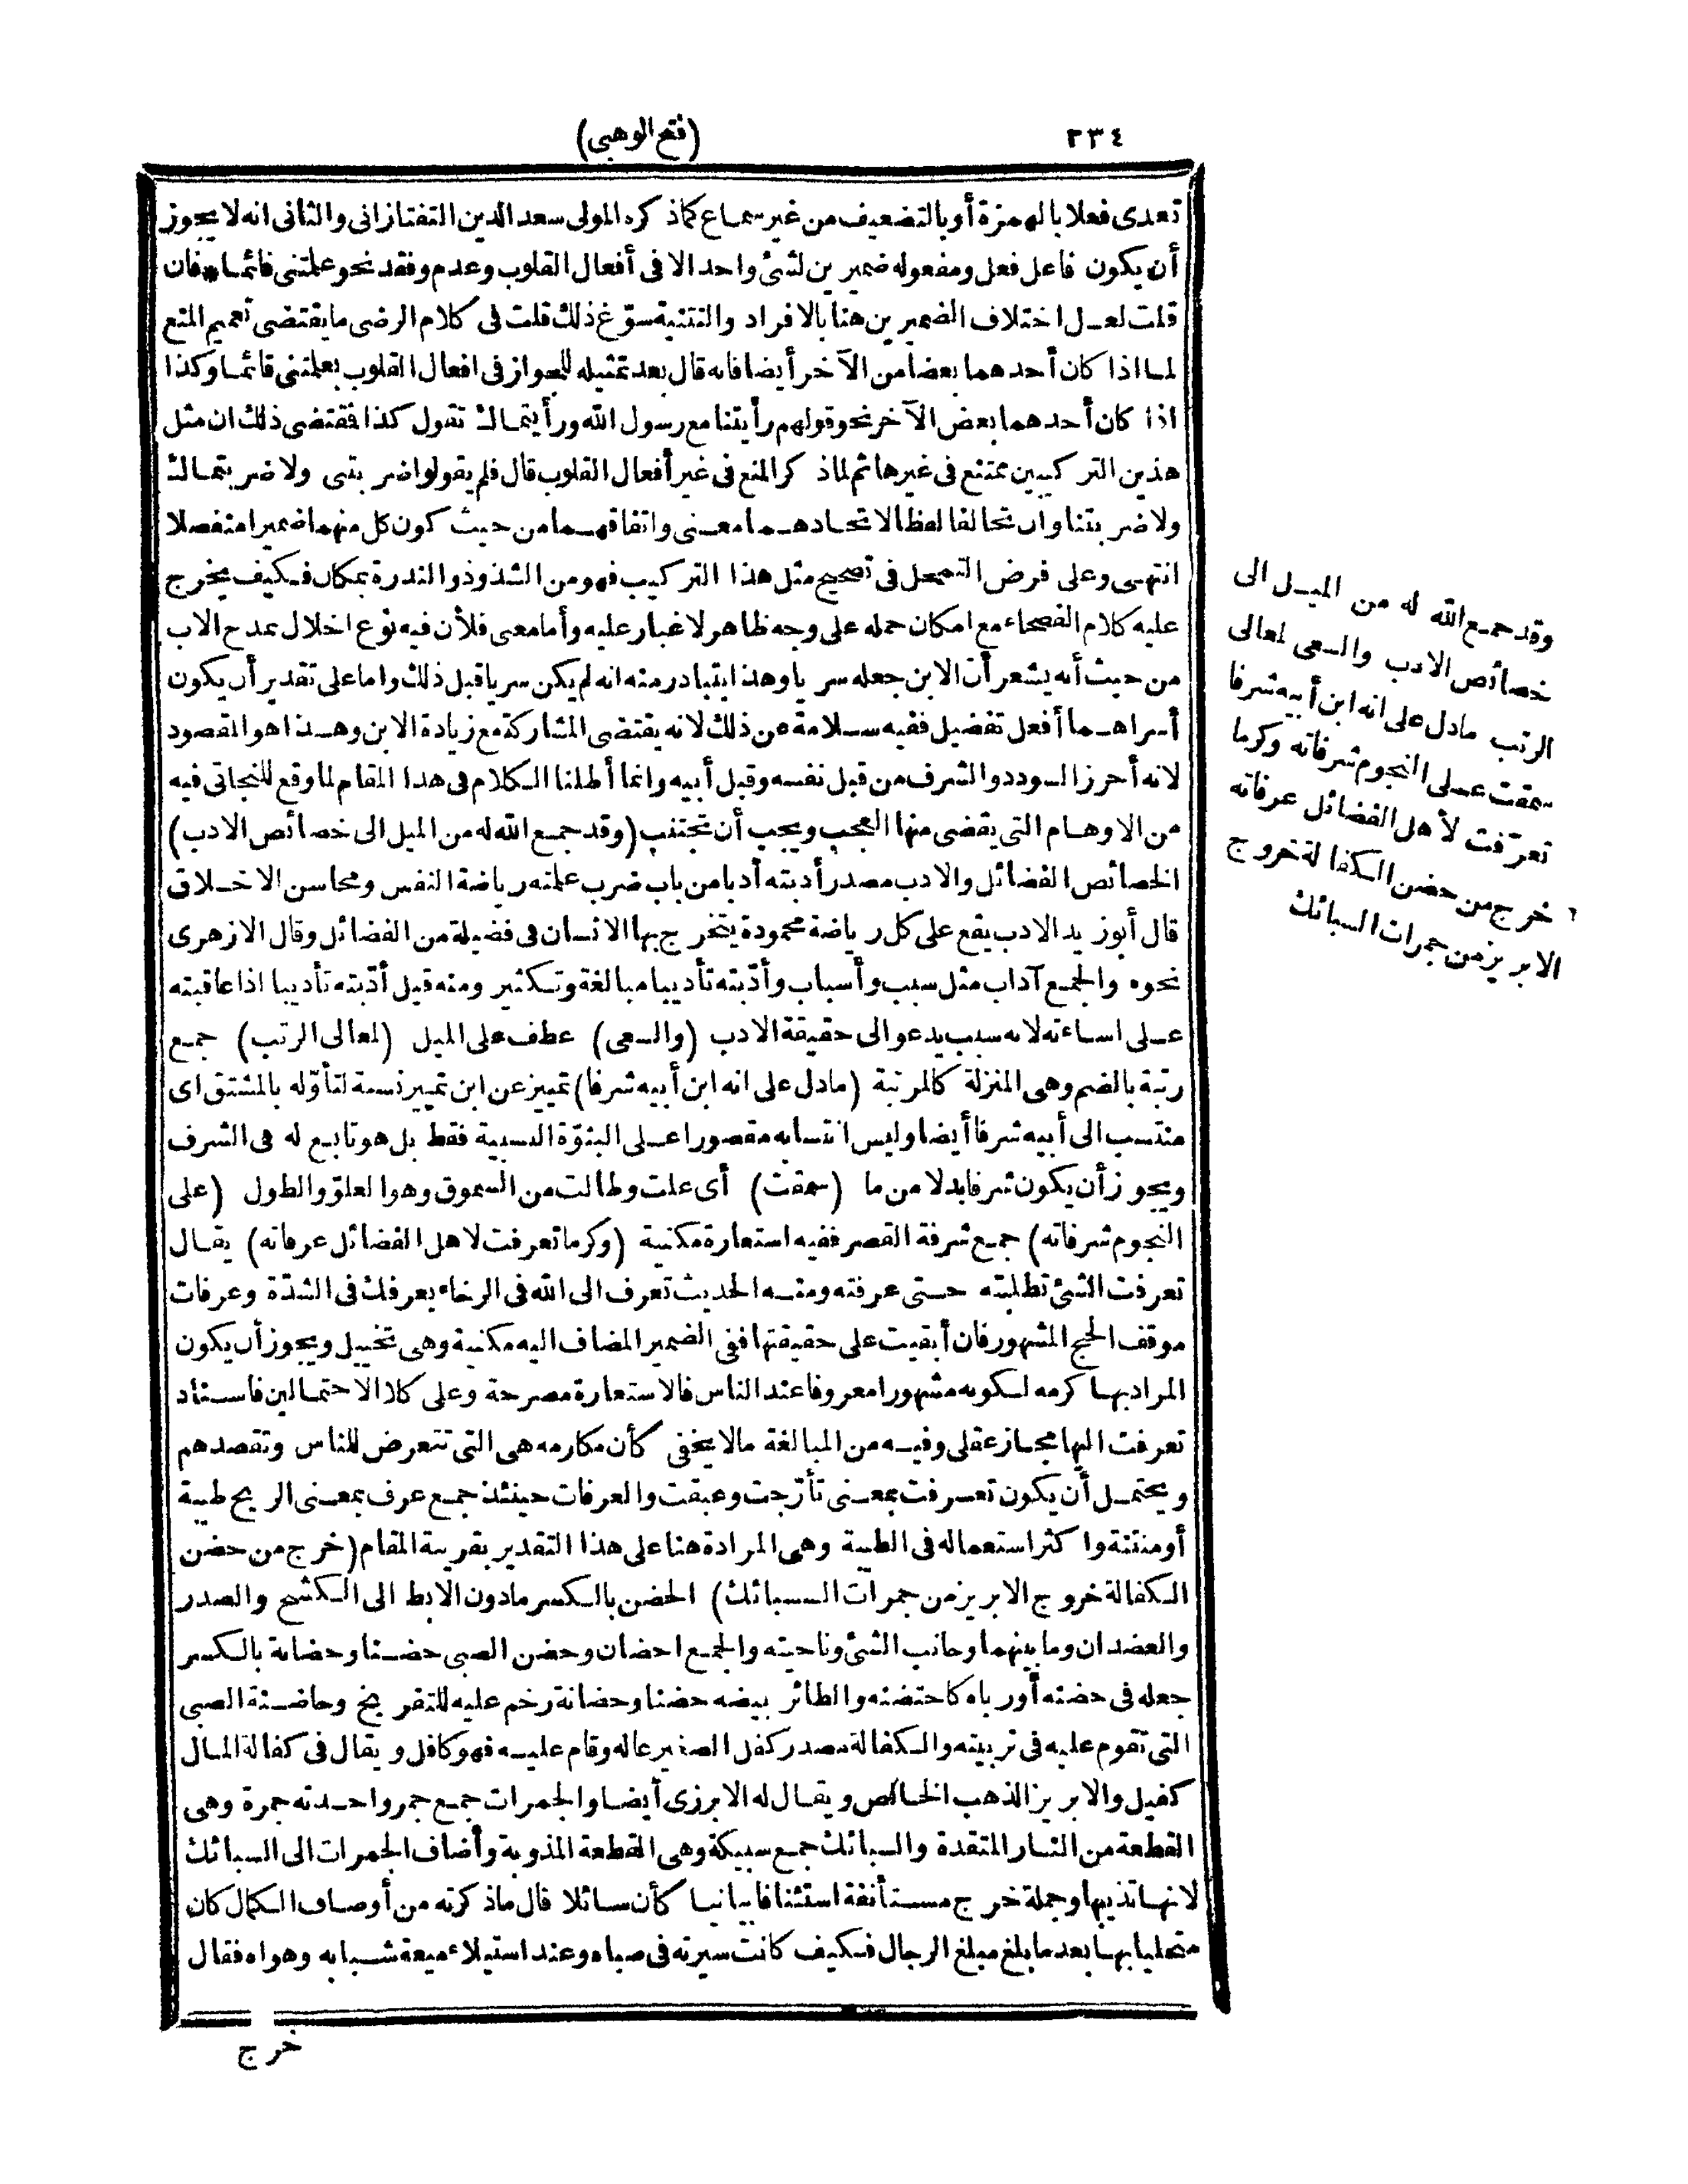 ٢٣٤
(فتح الوهبى)
تعدى فعلا بالهمزة أو بالتضعيف من غير سماع كماذكره المولى سعد الدين التفتازانى والثانى انه لا يجوز
أن يكون فاعل فعل ومفعوله ضميرين لشئ واحد الا فى أفعال القلوب وعدم وفقد نحو علمتنى قائما * فان
قلت لعل اختلاف الضميرين هنا بالافراد والتثنية سوّغ ذلك قلت فى كلام الرضى ما يقتضى تعميم المنع
لما اذا كان أحدهما بعضا من الآخر أيضا فانه قال بعد تمثيله للجواز فى افعال القلوب بعلمتنى قائما وكذا
اذا كان أحدهما بعض الآخر نحو قولهم رأيتنا مع رسول الله ورأيتماك تقول كذا فمقتضى ذلك ان مثل
هذين التركيبين ممتنع فى غيرها ثم لما ذكر المنع فى غير أفعال القلوب قال فلم يقولوا ضربتنى ولا ضربتماك
ولا ضربتنا وان تخالفا لفظا لاتحادهما معنى واتفاقهما من حيث كون كل منهما ضميرا متصلا
انتهى وعلى فرض التمحل فى تصحيح مثل هذا التركيب فهو من الشذوذ والندرة بمكان فكيف يخرج
عليه كلام الفصحاء مع امكان حمله على وجه ظاهر لا غبار عليه وأما معنى فلأن فيه نوع اخلال بمدح الاب
من حيث أنه يشعر أن الابن جعله سريا وهذا يتبادر منه انه لم يكن سريا قبل ذلك واما على تقدير أن يكون
أسراهما أفعل تفضيل ففيه سلامة عن ذلك لانه يقتضى المشاركة مع زيادة الابن وهذا هو المقصود
لانه أحرز السودد والشرف من قبل نفسه وقبل أبيه وانما أطلنا الكلام فى هذا المقام لما وقع للنجاتى فيه
من الاوهام التى يقضى منها العجب ويجب أن تجتنب (وقد جمع الله له من الميل الى خصائص الادب)
الخصائص الفضائل والادب مصدر أدبته أدبا من باب ضرب علمته رياضة النفس ومحاسن الاخلاق
قال أبو زيد الادب يقع على كل رياضة محمودة يتخرج بها الانسان فى فضيلة من الفضائل وقال الازهرى
نحوه والجمع آداب مثل سبب وأسباب وأدّبته تأديبا مبالغة وتكثير ومنه قيل أدّبته تأديبا اذا عاقبته
على اساءته لانه سبب يدعو الى حقيقة الادب (والسعى) عطف على الميل (لمعالى الرتب) جمع
رتبة بالضم وهى المنزلة كالمرتبة (مادل على انه ابن أبيه شرفا) تمييز عن ابن تمييز نسبة لتأوّله بالمشتق اى
منتسب الى أبيه شرفا أيضا وليس انتسابه مقصورا على البنوّة النسبية فقط بل هو تابع له فى الشرف
ويجوز أن يكون شرفا بدلا من ما (سمقت) أى علت وطالت من السموق وهو العلوّ والطول (على
النجوم شرفاته) جمع شرفة القصر ففيه استعارة مكنية (وكرما تعرفت لاهل الفضائل عرفاته) يقال
تعرفت الشئ تطلبته حتى عرفته ومنه الحديث تعرف الى الله فى الرخاء يعرفك فى الشدّة وعرفات
موقف الحج المشهور فان أبقيت على حقيقتها ففى الضمير المضاف اليه مكنية وهى تخييل ويجوز أن يكون
المراد بها كرمه لكونه مشهورا معروفا عند الناس فالاستعارة مصرحة وعلى كلا الاحتمالين فاسناد
تعرفت اليها مجاز عقلى وفيه من المبالغة مالا يخفى كأن مكارمه هى التى تتعرض للناس وتقصدهم
ويحتمل أن يكون تعرفت بمعنى تأرّجت وعبقت والعرفات حينئذ جمع عرف بمعنى الريح طيبة
أو منتنة واكثر استعماله فى الطيبة وهى المرادة هنا على هذا التقدير بقرينة المقام (خرج من حضن
الكفالة خروج الابريز من جمرات السبائك) الحضن بالكسر مادون الابط الى الكشح والصدر
والعضدان وما بينهما وجانب الشئ وناحيته والجمع احضان وحضن الصبى حضنا وحضانة بالكسر
جعله فى حضنه أو رباه كاحتضنه والطائر بيضه حضنا وحضانة رخم عليه للتفريخ وحاضنة الصبى
التى تقوم عليه فى تربيته والكفالة مصدر كفل الصغير عاله وقام عليه فهو كافل ويقال فى كفالة المال
كفيل والابريز الذهب الخالص ويقال له الابرزى أيضا والجمرات جمع جمر واحدته جمرة وهى
القطعة من النار المتقدة والسبائك جمع سبيكة وهى القطعة المذوبة وأضاف الجمرات الى السبائك
لانها تذيبها وجملة خرج مستأنفة استئنافا بيانيا كأن سائلا قال ماذكرته من أوصاف الكمال كان
متحليا بها بعد ما بلغ مبلغ الرجال فكيف كانت سيرته فى صباه وعند استيلاء ميعة شبابه وهواه فقال
خرج
وقد جمع الله له من الميل الى
خصائص الادب والسعى لمعالى
الرتب مادل على انه ابن أبيه شرفا
سمقت على النجوم شرفاته وكرما
تعرّفت لأهل الفضائل عرفاته
خرج من حضن الكفالة خروج
الابريز من جمرات السبائك